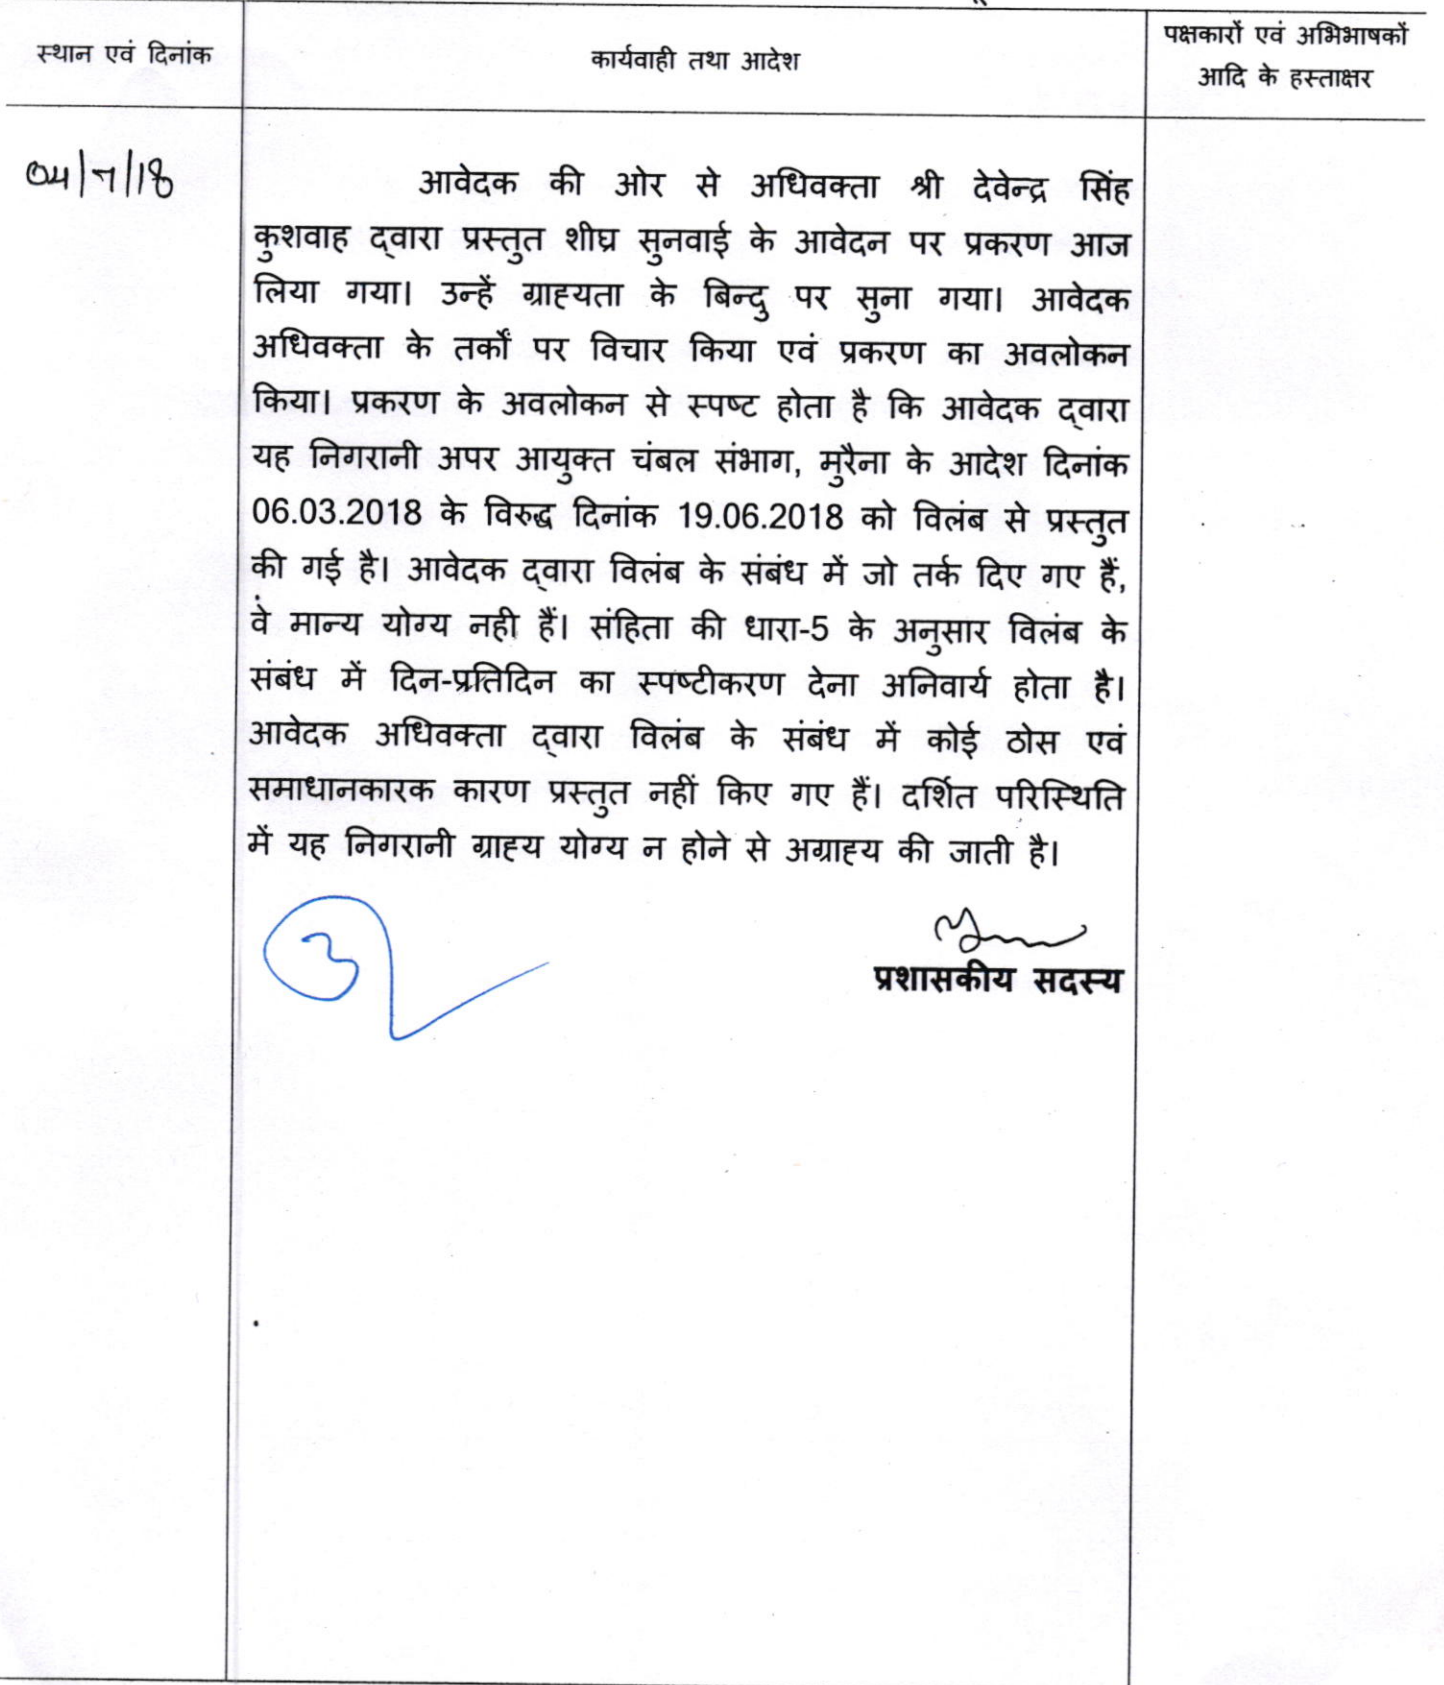 स्थान एवं दिनांक
कार्यवाही तथा आदेश
पक्षकारों एवं अभिभाषकों
आदि के हस्ताक्षर
04/7/18
आवेदक की ओर से अधिवक्ता श्री देवेन्द्र सिंह
कुशवाह द्वारा प्रस्तुत शीघ्र सुनवाई के आवेदन पर प्रकरण आज
लिया गया। उन्हें ग्राह्यता के बिन्दु पर सुना गया। आवेदक
अधिवक्ता के तर्कों पर विचार किया एवं प्रकरण का अवलोकन
किया। प्रकरण के अवलोकन से स्पष्ट होता है कि आवेदक द्वारा
यह निगरानी अपर आयुक्त चंबल संभाग, मुरैना के आदेश दिनांक
06.03.2018 के विरुद्ध दिनांक 19.06.2018 को विलंब से प्रस्तुत
की गई है। आवेदक द्वारा विलंब के संबंध में जो तर्क दिए गए हैं,
वे मान्य योग्य नही हैं। संहिता की धारा-5 के अनुसार विलंब के
संबंध में दिन-प्रतिदिन का स्पष्टीकरण देना अनिवार्य होता है।
आवेदक अधिवक्ता द्वारा विलंब के संबंध में कोई ठोस एवं
समाधानकारक कारण प्रस्तुत नहीं किए गए हैं। दर्शित परिस्थिति
में यह निगरानी ग्राह्य योग्य न होने से अग्राह्य की जाती है।
प्रशासकीय सदस्य